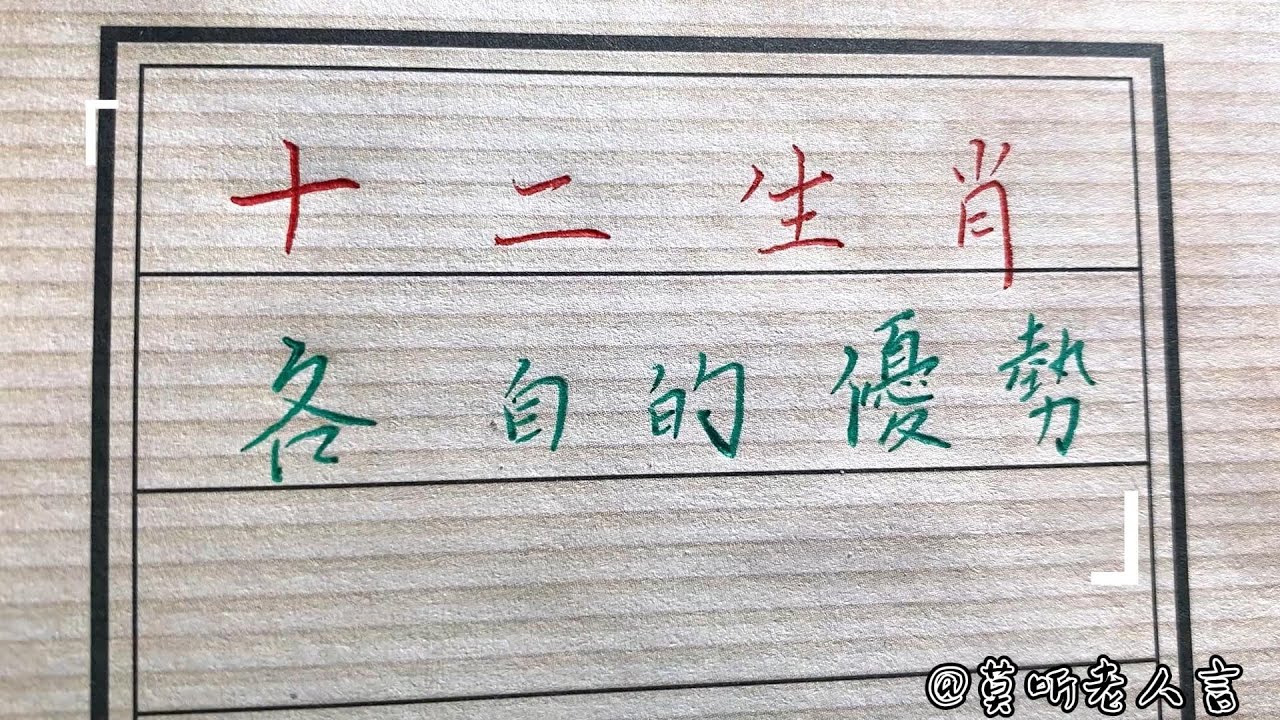 十二生肖
各自的優勢
@莫听老人言